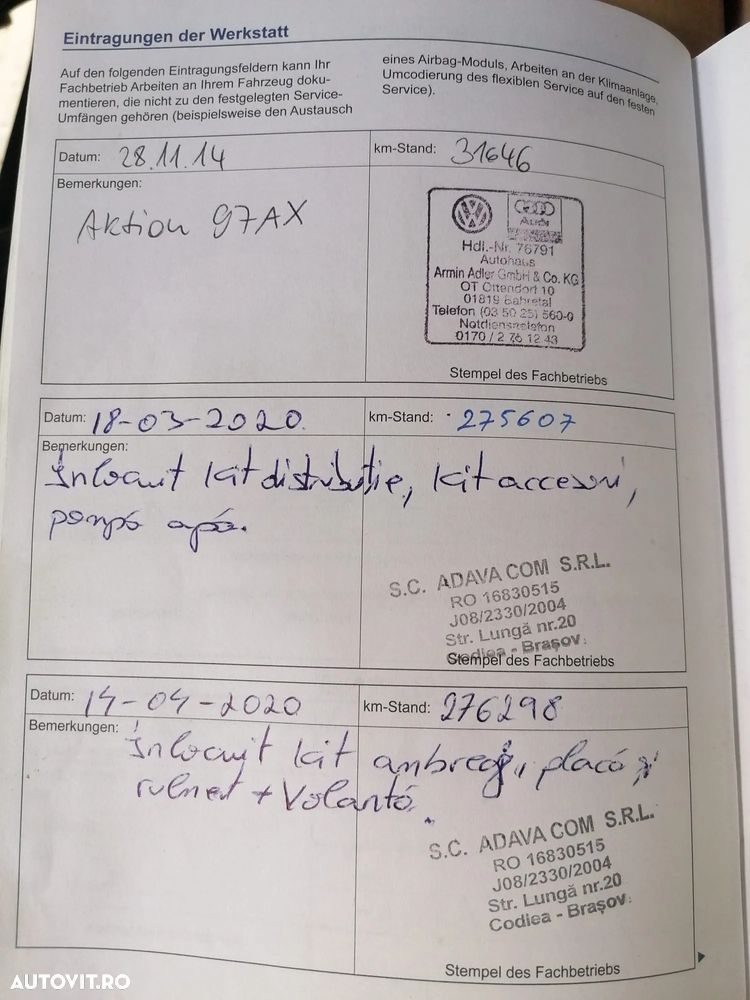 Eintragungen der Werkstatt
Auf den folgenden Eintragungsfeldern kann Ihr
Fachbetrieb Arbeiten an Ihrem Fahrzeug doku-
mentieren, die nicht zu den festgelegten Service-
Umfängen gehören (beispielsweise den Austausch
eines Airbag-Moduls, Arbeiten an der Klimaanlage,
Umcodierung des flexiblen Service auf den festen
Service).
Datum: 28.11.14
km-Stand: 31646
Bemerkungen:
Aktion 97AX
Audi
Hdl.-Nr. 76791
Autohaus
Armin Adler GmbH & Co. KG
OT Ottendorf 10
01819 Bahretal
Telefon (03 50 25) 560-0
Notdiensttelefon
0170 / 2 76 12 43
Stempel des Fachbetriebs
Datum: 18-03-2020.
km-Stand: 275607
Bemerkungen:
Înlocuit kit distribuție, kit accesorii,
pompă apă.
S.C. ADAVA COM S.R.L.
RO 16830515
J08/2330/2004
Str. Lungă nr.20
Codlea - Brașov
Stempel des Fachbetriebs
Datum: 14-04-2020
km-Stand: 276298
Bemerkungen:
Înlocuit kit ambreaj, placă,
rulmet + Volantă.
S.C. ADAVA COM S.R.L.
RO 16830515
J08/2330/2004
Str. Lungă nr.20
Codlea - Brașov
Stempel des Fachbetriebs
AUTOVIT.RO